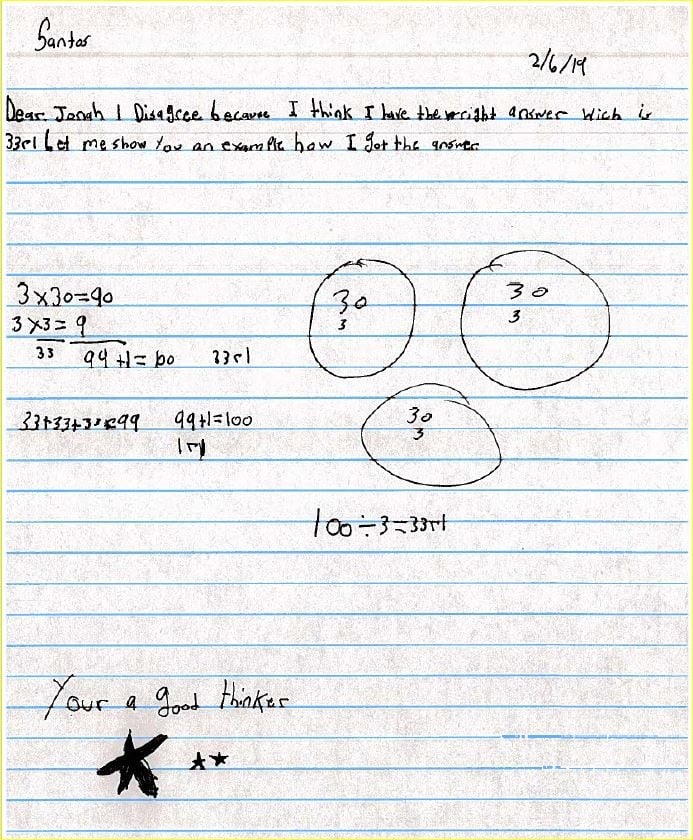 Santos
2/6/19
Dear Jonah I Disagree because I think I have the wright answer Wich is
33r1 Let me show You an example how I got the answer
3x30=90
3x3=9
33 99+1=100 33r1
30
3
30
3
33+33+33=99 99+1=100
1r1
30
3
100÷3=33r1
Your a good thinker